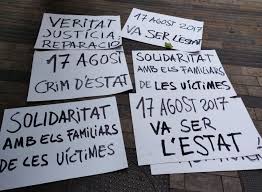 VERITAT
JUSTÍCIA
REPARACIÓ
17 AGOST 2017
VA SER
L'ESTAT
17 AGOST
CRIM D'ESTAT
SOLIDARITAT
AMB ELS FAMILIARS
DE LES VÍCTIMES
SOLIDARITAT
AMB ELS FAMILIARS
DE LES VÍCTIMES
17 AGOST 2017
VA SER
L'ESTAT